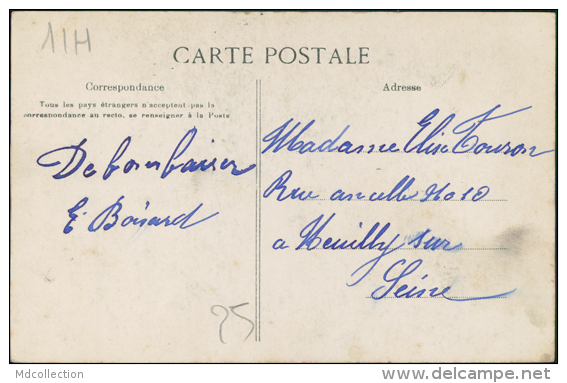 11H
CARTE POSTALE
Correspondance
Tous les pays étrangers n'acceptent pas la
correspondance au recto, se renseigner à la Poste
De bons baisers
E. Boisard
Adresse
Madame Elise Touron
Rue ancelle No 10
a Neuilly sur
Seine
25
Mdcollection
delcampe.net